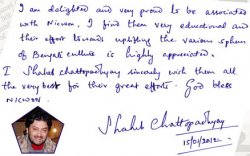 I am delighted and very proud to be associated
with Nicwon. I find them very educational and
their effort towards uplifting the various sphere
of Bengali culture is highly appreciated.
I Shaheb Chattopadhyay sincerely wish them all
the very best for their great efforts. God bless
NICWON.
Shaheb Chattopadhyay
15/01/2012